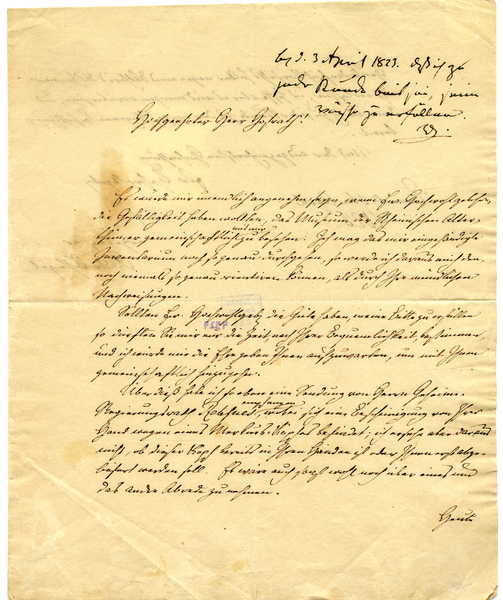 d. 3 April 1823. daß ich zu
jeder Stunde bereit sei, seine
Wünsche zu erfüllen.
Hochgeehrter Herr Hofrath!
Es würde mir unendlich angenehm seyn, wenn Ew. Hochwohlgeboren
die Gefälligkeit haben wollten, das Museum der Rheinischen Alter-
thümer gemeinschaftlich mit mir zu besehen. Ich mag das mir eingehändigte
Inventarium noch so genau durchgehen, so werde ich daraus mich den-
noch niemals so genau orientiren können, als durch Ihre mündlichen
Nachweisungen.
Sollten Ew. Hochwohlgeb. die Güte haben, meine Bitte zu erfüllen
so dürften Sie mir nur die Zeit nach Ihrer Bequemlichkeit bestimmen
und ich würde mir die Ehre geben Ihnen aufzuwarten, um mit Ihnen
gemeinschaftlich hinzugehen.
Überdieß habe ich so eben eine Sendung von Herrn Geheime-
Regierungsrath Rehfues empfangen, wobei sich eine Bescheinigung von Ihrer
Hand wegen eines Merkur-Kopfes befindet; ich ersehe aber daraus
nicht, ob dieser Kopf bereits in Ihren Händen ist oder Ihnen erst abge-
liefert werden soll. Es wäre auch wohl noch über eines und
das andre Abrede zu nehmen.
Heute